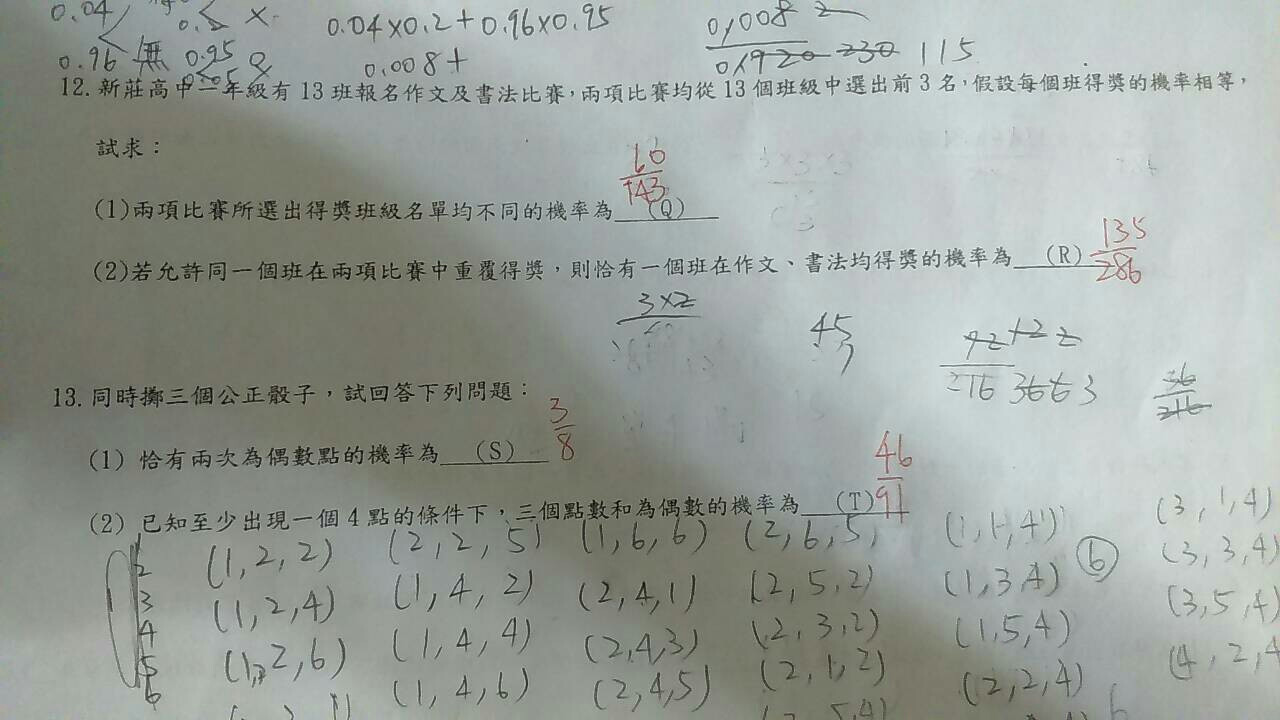 0.04 0.2 × 0.04×0.2+0.96×0.95 0.008
0.96 無 0.95 0.008+ 0.1920 230 115
12. 新莊高中一年級有 13 班報名作文及書法比賽，兩項比賽均從 13 個班級中選出前 3 名，假設每個班得獎的機率相等，
試求：
60
143
(1)兩項比賽所選出得獎班級名單均不同的機率為 (Q)
135
286
(2)若允許同一個班在兩項比賽中重覆得獎，則恰有一個班在作文、書法均得獎的機率為 (R)
3×2 45 72 12 2
216 36 6 3 36
216
13. 同時擲三個公正骰子，試回答下列問題：
3
8
(1) 恰有兩次為偶數點的機率為 (S)
46
91
(2) 已知至少出現一個 4 點的條件下，三個點數和為偶數的機率為 (T)
1 2 3 4 5 6
(1,2,2) (2,2,5) (1,6,6) (2,6,5) (1,1,4) 6 (3,1,4)
(1,2,4) (1,4,2) (2,4,1) (2,5,2) (1,3,4) (3,3,4)
(1,2,6) (1,4,4) (2,4,3) (2,3,2) (1,5,4) (3,5,4)
(1,4,6) (2,4,5) (2,1,2) (2,2,4) (4,2,4